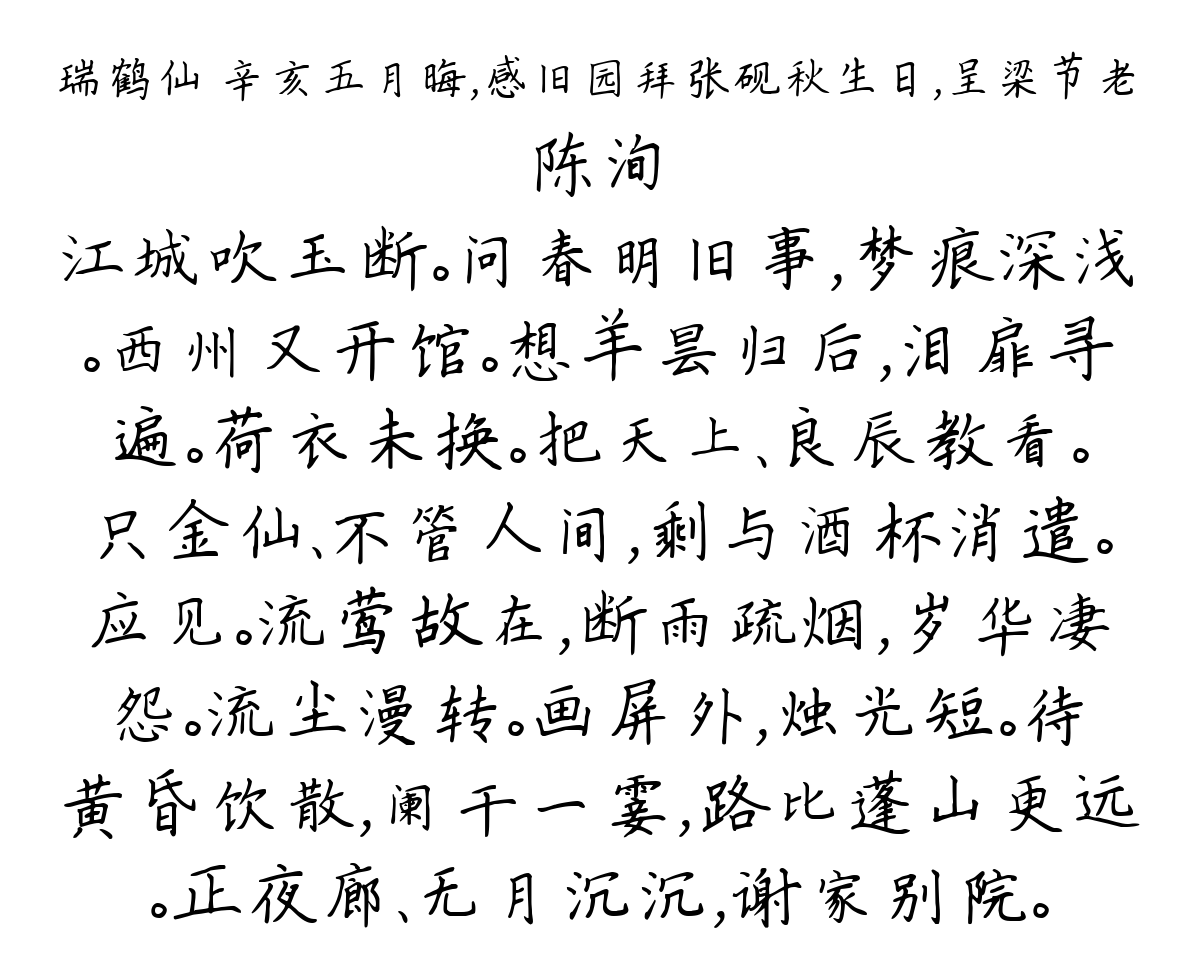 瑞鹤仙 辛亥五月晦,感旧园拜张砚秋生日,呈梁节老
陈洵
江城吹玉断。问春明旧事,梦痕深浅
。西州又开馆。想羊昙归后,泪扉寻
遍。荷衣未换。把天上、良辰教看。
只金仙、不管人间,剩与酒杯消遣。
应见。流莺故在,断雨疏烟,岁华凄
怨。流尘漫转。画屏外,烛光短。待
黄昏饮散,阑干一霎,路比蓬山更远
。正夜廊、无月沉沉,谢家别院。